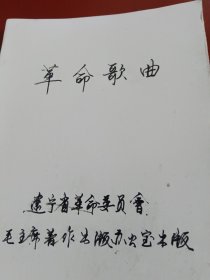 革命歌曲
辽宁省革命委员会
毛主席著作出版办公室出版